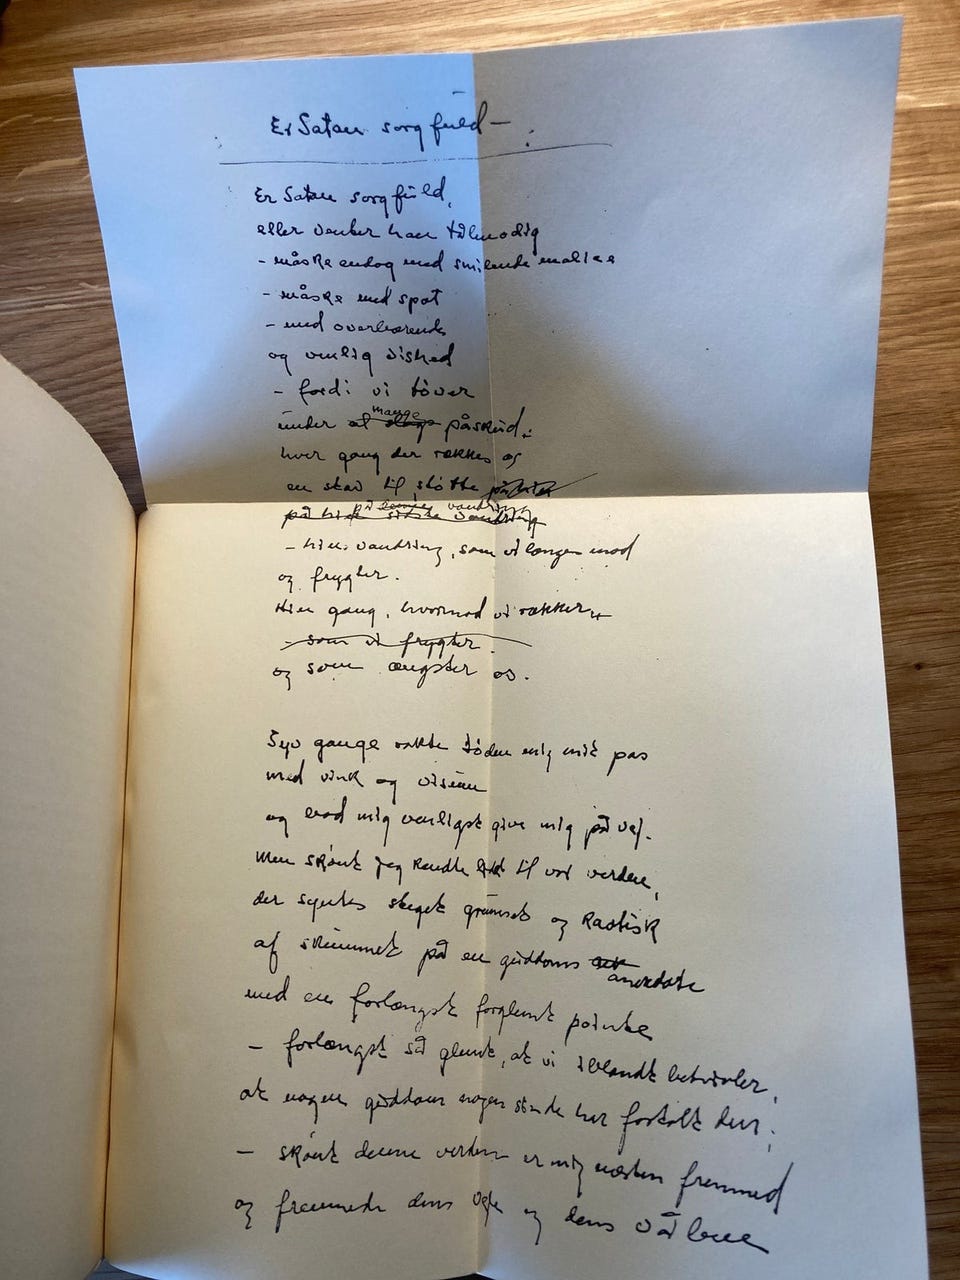 Er Satan sorgfuld –
Er Satan sorgfuld,
eller venter han tålmodig
- måske endog med smilende malice
- måske med spot
- med overbærende
og venlig vished
- fordi vi tøver
under mange påskud,
hver gang der rækkes os
en stav til støtte
på vandring
- hin vandring, som vi længes mod
og frygter.
Hin gang, hvormod vi rækker,
- som vi frygter.
og som ængster os.
Syv gange rakte døden mig mit pas
med vink og visum
og bød mig venligst give mig på vej.
Men skønt jeg kendte lidt til vor verden,
der syntes sleget grumset og kaotisk
af skimmel på en guddoms anekdote
med en forlængst forglemt pointe
- forlængst så glemt, at vi iblandt betvivler,
at nogen guddom nogen sinde har fortalt den;
- skønt denne verden er mig næsten fremmed
og fremmede dens og dens våben